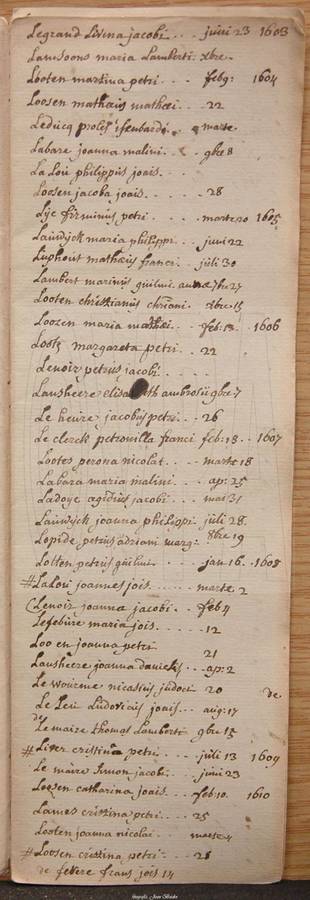 Legrand Livina jacobi . . . juni 23 1603
Lamsoons maria Lamberti. xbre.
Looten martina petri . . . feb9: 1604
Loosen mathæus mathæi . . . 22
Leducq proles isenbardi . . marte
Labare joanna malini . . . gbre 8
La Loù philippùs joais . . .
Loosen jacoba joais . . . . 28
Lije firminus petri . . . . marte 20 1605
Laùwijck maria philippi . . juni 22
Liphoùt mathæùs franci . . jùli 30
Lambert marinùs gùilmi. 7bre 27
Looten christianùs chriani . xbre. 15
Loosen maria mathæi . . feb: 13. . 1606
Loots margareta petri . . 22
Lenoir petrùs jacobi . . . .
Lausheere elisabeth ambrosii gbre 7
Le heùre jacobùs petri . . 26
Le clerck petronilla franci feb. 18. . 1607
Lootes perona nicolai . . . marte 18
Labara maria malini . . . ap: 25
Ladoye jacobi . . mai 31
Laùwijck joanna philippi. jùli 28.
Lepide petrùs adriani 8bre 19
Lotten petrùs gùilmi . . . jan 16. . 1608
# Laloù joannes jois . . . . . marte 2
Lenoir joanna jacobi . . feb 4
Lefebùre maria jois . . . . . 12
Loo en joanna petri . . 21
Lausheere joanna danielis . . . ap: 2
Le woùrme nicasiùs jùdoci 20 de
Le Leù Lùdovicùs joais . . . aug: 17
de
Le maire thomas Lamberti gbre 15
# Liver cristina petri . . . . jùli 13 1609
Le maire simon jacobi . . . juni 23
Loosen catharina joais . . . feb 10. 1610
Lames cristina petri . . . 25
Looten joanna nicolai . . marte 4
# Loosen cristina petri . . . 28
de fevere frans jois 14